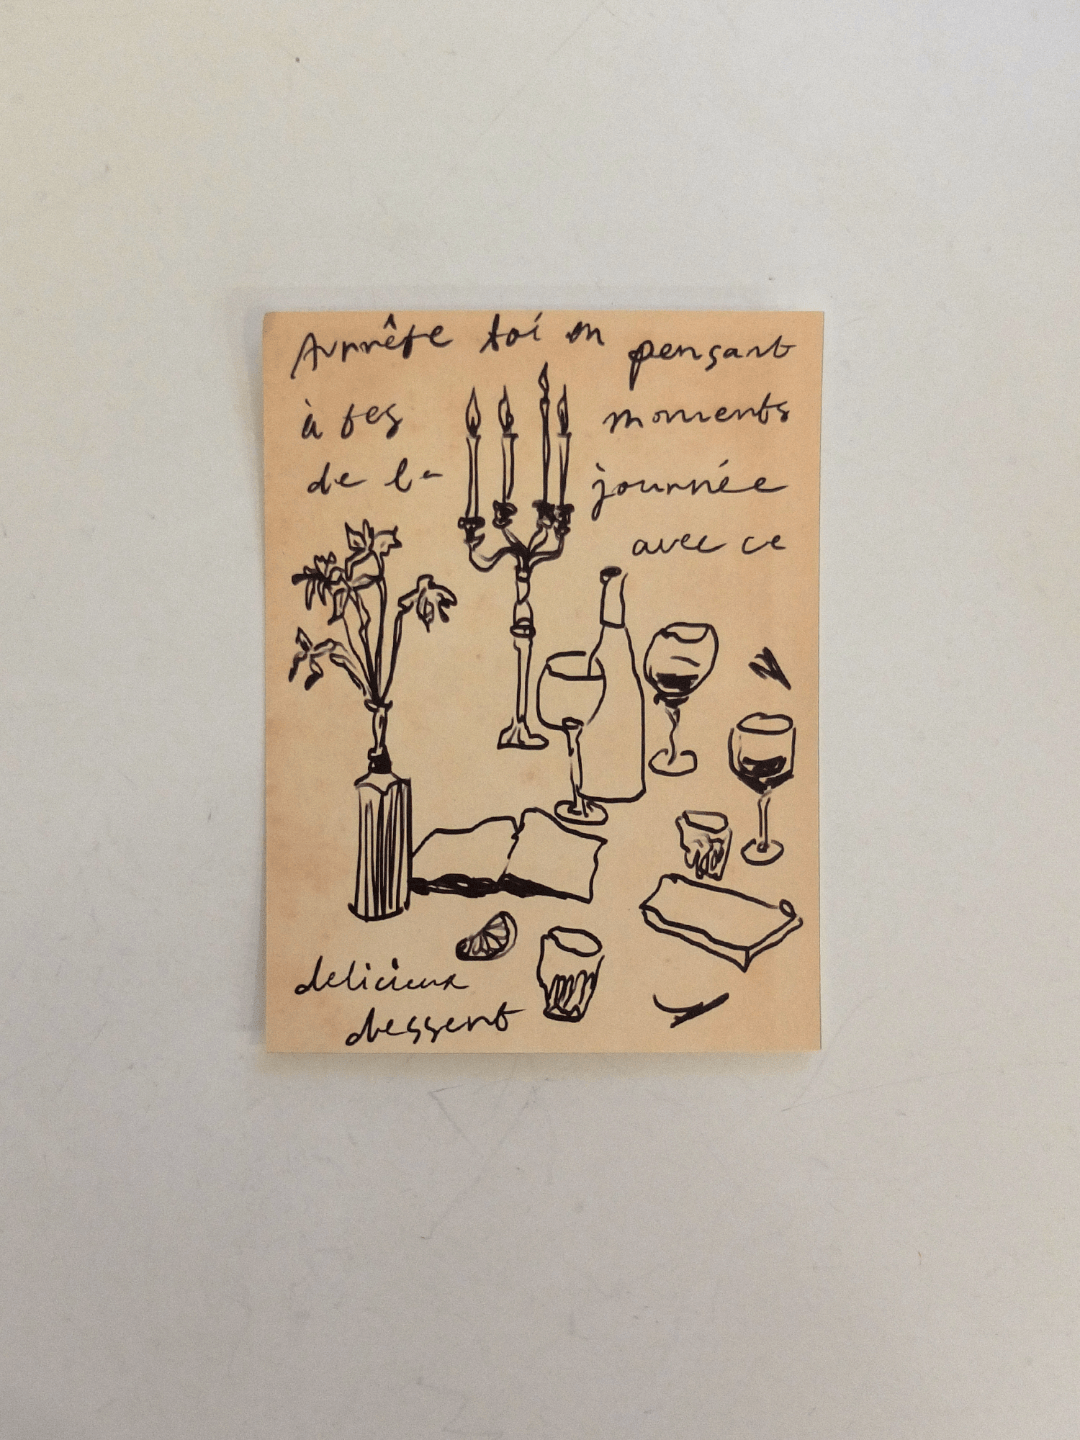 Arrête toi en pensant
à tes moments
de la journée
avec ce
delicieux
dessert